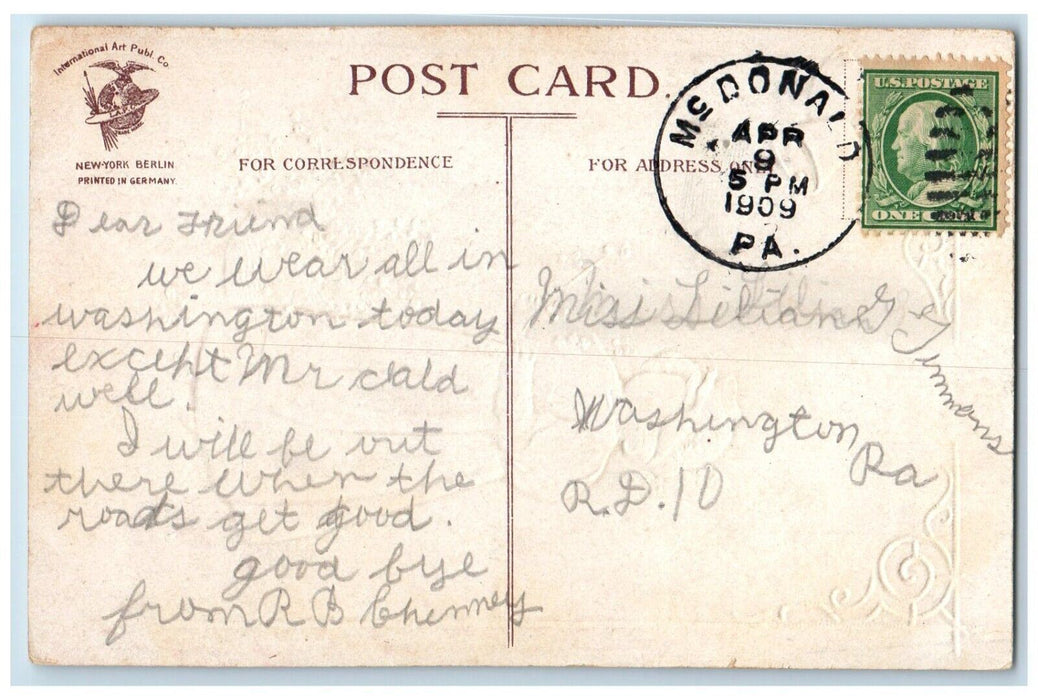 International Art Publ. Co.
NEW-YORK BERLIN
PRINTED IN GERMANY.
POST CARD.
FOR CORRESPONDENCE
FOR ADDRESS ONLY
McDONALD
APR
9
5 PM
1909
PA.
U.S. POSTAGE
ONE
Dear Friend
we wear all in
washington today
except Mr
well.
I will be out
there when the
roads get good.
good bye
from R B Chenney
Miss Lillian G
Washington
Pa
R.D. 10